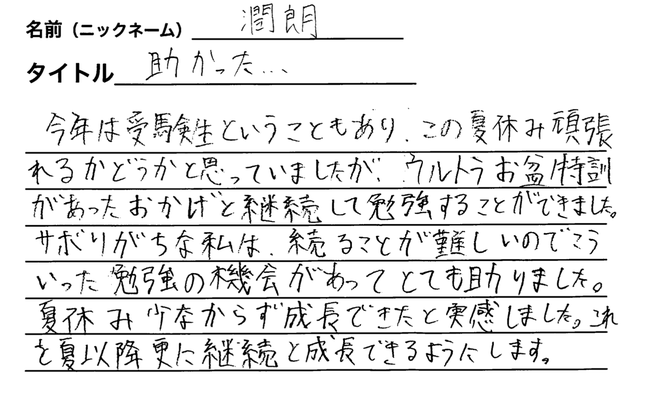 名前（ニックネーム） 潤朗
タイトル 助かった...
今年は受験生ということもあり、この夏休み頑張
れるかどうかと思っていましたが、ウルトラお盆特訓
があったおかげと継続して勉強することができました。
サボりがちな私は、続ることが難しいのでこう
いった勉強の機会があってとても助りました。
夏休み少なからず成長できたと実感しました。これ
を夏以降更に継続と成長できるようにします。